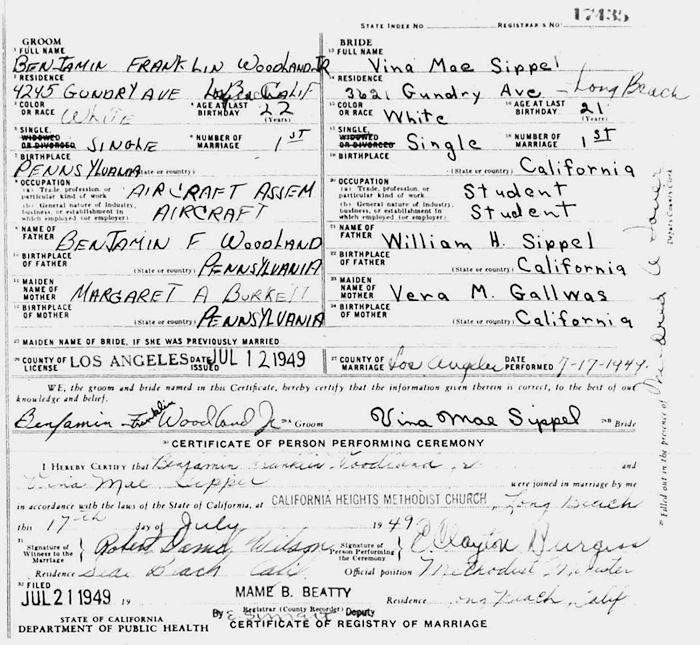 STATE INDEX NO. REGISTRAR'S NO. 17435
GROOM
1 FULL NAME
BENJAMIN FRANKLIN WOODLAND, JR
2 RESIDENCE
4245 GUNDRY AVE Long Beach CALIF
3 COLOR OR RACE WHITE 4 AGE AT LAST BIRTHDAY 22 (Years)
5 SINGLE, WIDOWED OR DIVORCED SINGLE 6 NUMBER OF MARRIAGE 1ST
7 BIRTHPLACE
PENNSYLVANIA (State or country)
8 OCCUPATION
(a) Trade, profession, or particular kind of work AIRCRAFT ASSEM
(b) General nature of Industry, business, or establishment in which employed (or employer) AIRCRAFT
9 NAME OF FATHER BENJAMIN F WOODLAND
10 BIRTHPLACE OF FATHER (State or country) PENNSYLVANIA
11 MAIDEN NAME OF MOTHER MARGARET A BURKETT
12 BIRTHPLACE OF MOTHER (State or country) PENNSYLVANIA
BRIDE
13 FULL NAME
Vina Mae Sippel
14 RESIDENCE
3621 Gundry Ave - Long Beach
15 COLOR OR RACE White 16 AGE AT LAST BIRTHDAY 21 (Years)
17 SINGLE, WIDOWED OR DIVORCED Single 18 NUMBER OF MARRIAGE 1ST
19 BIRTHPLACE
(State or country) California
20 OCCUPATION
(a) Trade, profession, or particular kind of work Student
(b) General nature of Industry, business, or establishment in which employed (or employer) Student
21 NAME OF FATHER William H. Sippel
22 BIRTHPLACE OF FATHER (State or country) California
23 MAIDEN NAME OF MOTHER Vera M. Gallwas
24 BIRTHPLACE OF MOTHER (State or country) California
25 MAIDEN NAME OF BRIDE, IF SHE WAS PREVIOUSLY MARRIED
26 COUNTY OF LICENSE LOS ANGELES DATE ISSUED JUL 12 1949 27 COUNTY OF MARRIAGE Los Angeles DATE PERFORMED 7-17-1949
WE, the groom and bride named in this Certificate, hereby certify that the information given therein is correct, to the best of our
knowledge and belief.
Benjamin Franklin Woodland Jr 28A Groom Vina Mae Sippel 28B Bride
29 Filled out in the presence of
Deputy County Clerk
30 CERTIFICATE OF PERSON PERFORMING CEREMONY
I HEREBY CERTIFY that Benjamin Franklin Woodland Jr. and
Vina Mae Sippel were joined in marriage by me
in accordance with the laws of the State of California, at CALIFORNIA HEIGHTS METHODIST CHURCH, Long Beach
this 17th day of July 1949
31 Signature of Witness to the Marriage Robert James Wilson Signature of Person Performing the Ceremony C. Clayton Burgess
Residence Seal Beach Calif Official position Methodist Minister
32 FILED
JUL 21 1949 19 MAME B. BEATTY Residence Long Beach, Calif
Registrar (County Recorder)
By Deputy
STATE OF CALIFORNIA
DEPARTMENT OF PUBLIC HEALTH CERTIFICATE OF REGISTRY OF MARRIAGE